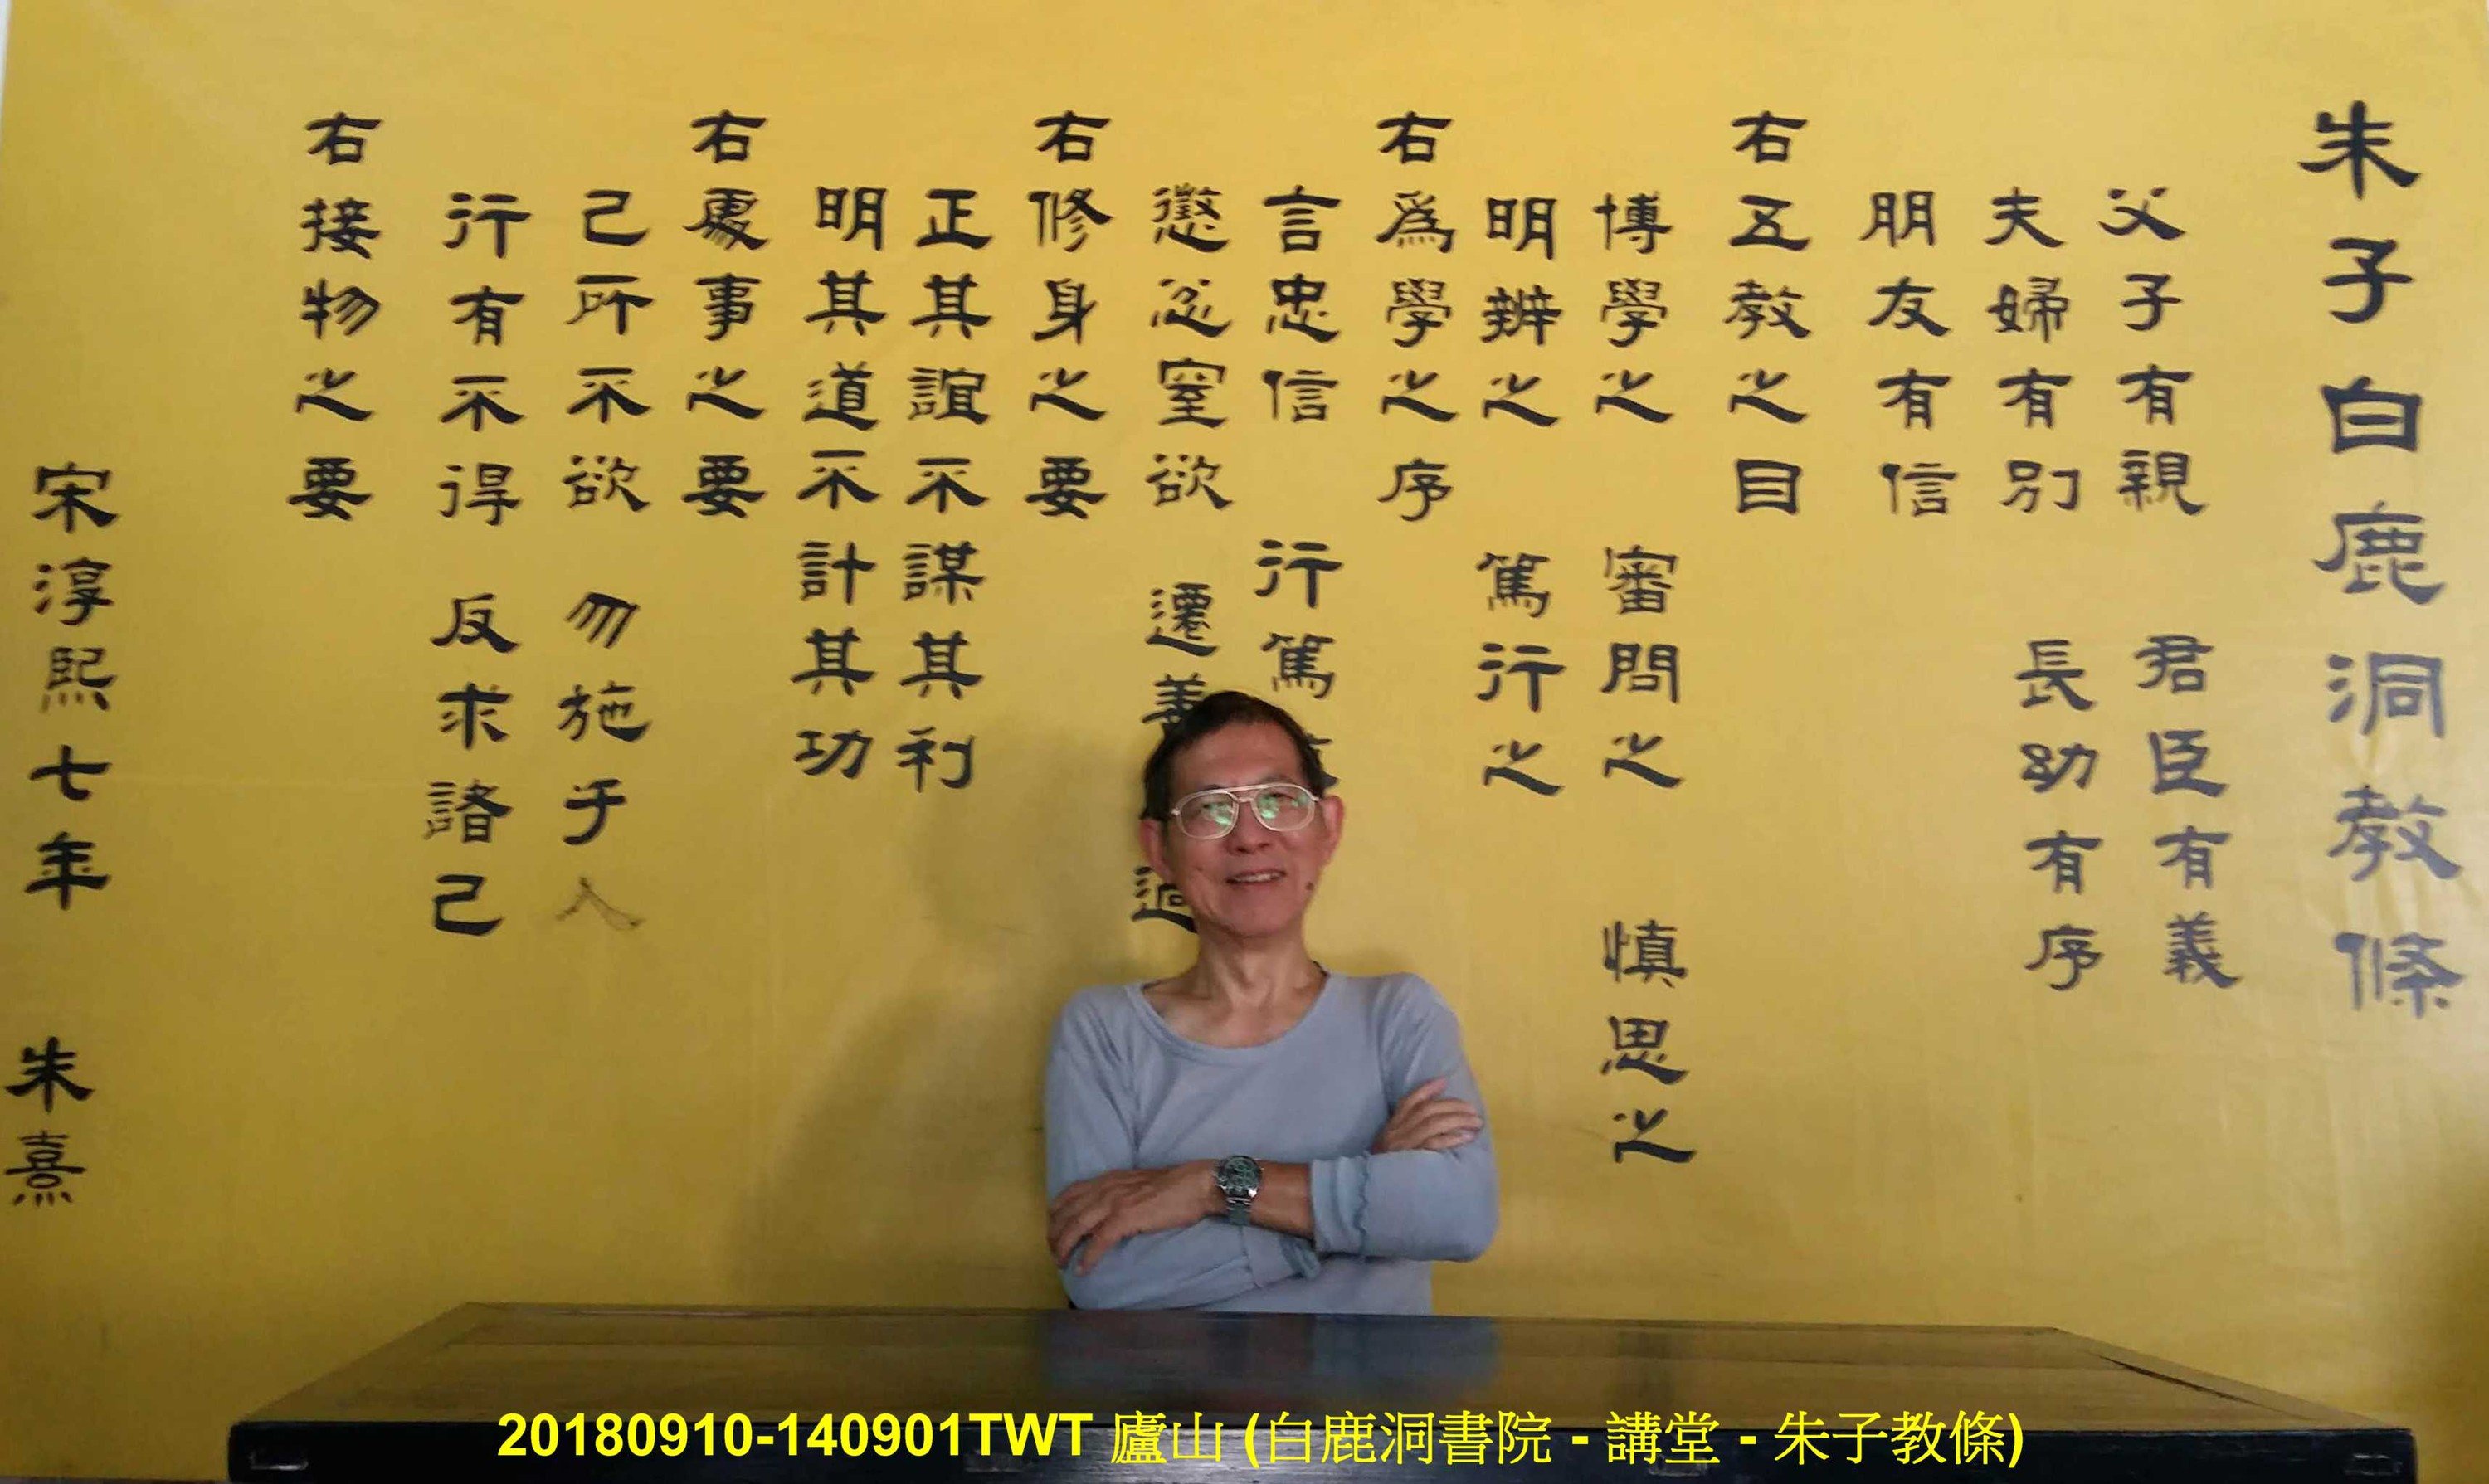 朱子白鹿洞教條
父子有親 君臣有義
夫婦有別 長幼有序
朋友有信
右五教之目
博學之 審問之 慎思之
明辨之 篤行之
右爲學之序
言忠信 行篤
懲忿窒欲 遷善過
右修身之要
正其誼不謀其利
明其道不計其功
右處事之要
己所不欲 勿施于人
行有不得 反求諸己
右接物之要
宋淳熙七年 朱熹
20180910-140901TWT 廬山 (白鹿洞書院 - 講堂 - 朱子教條)